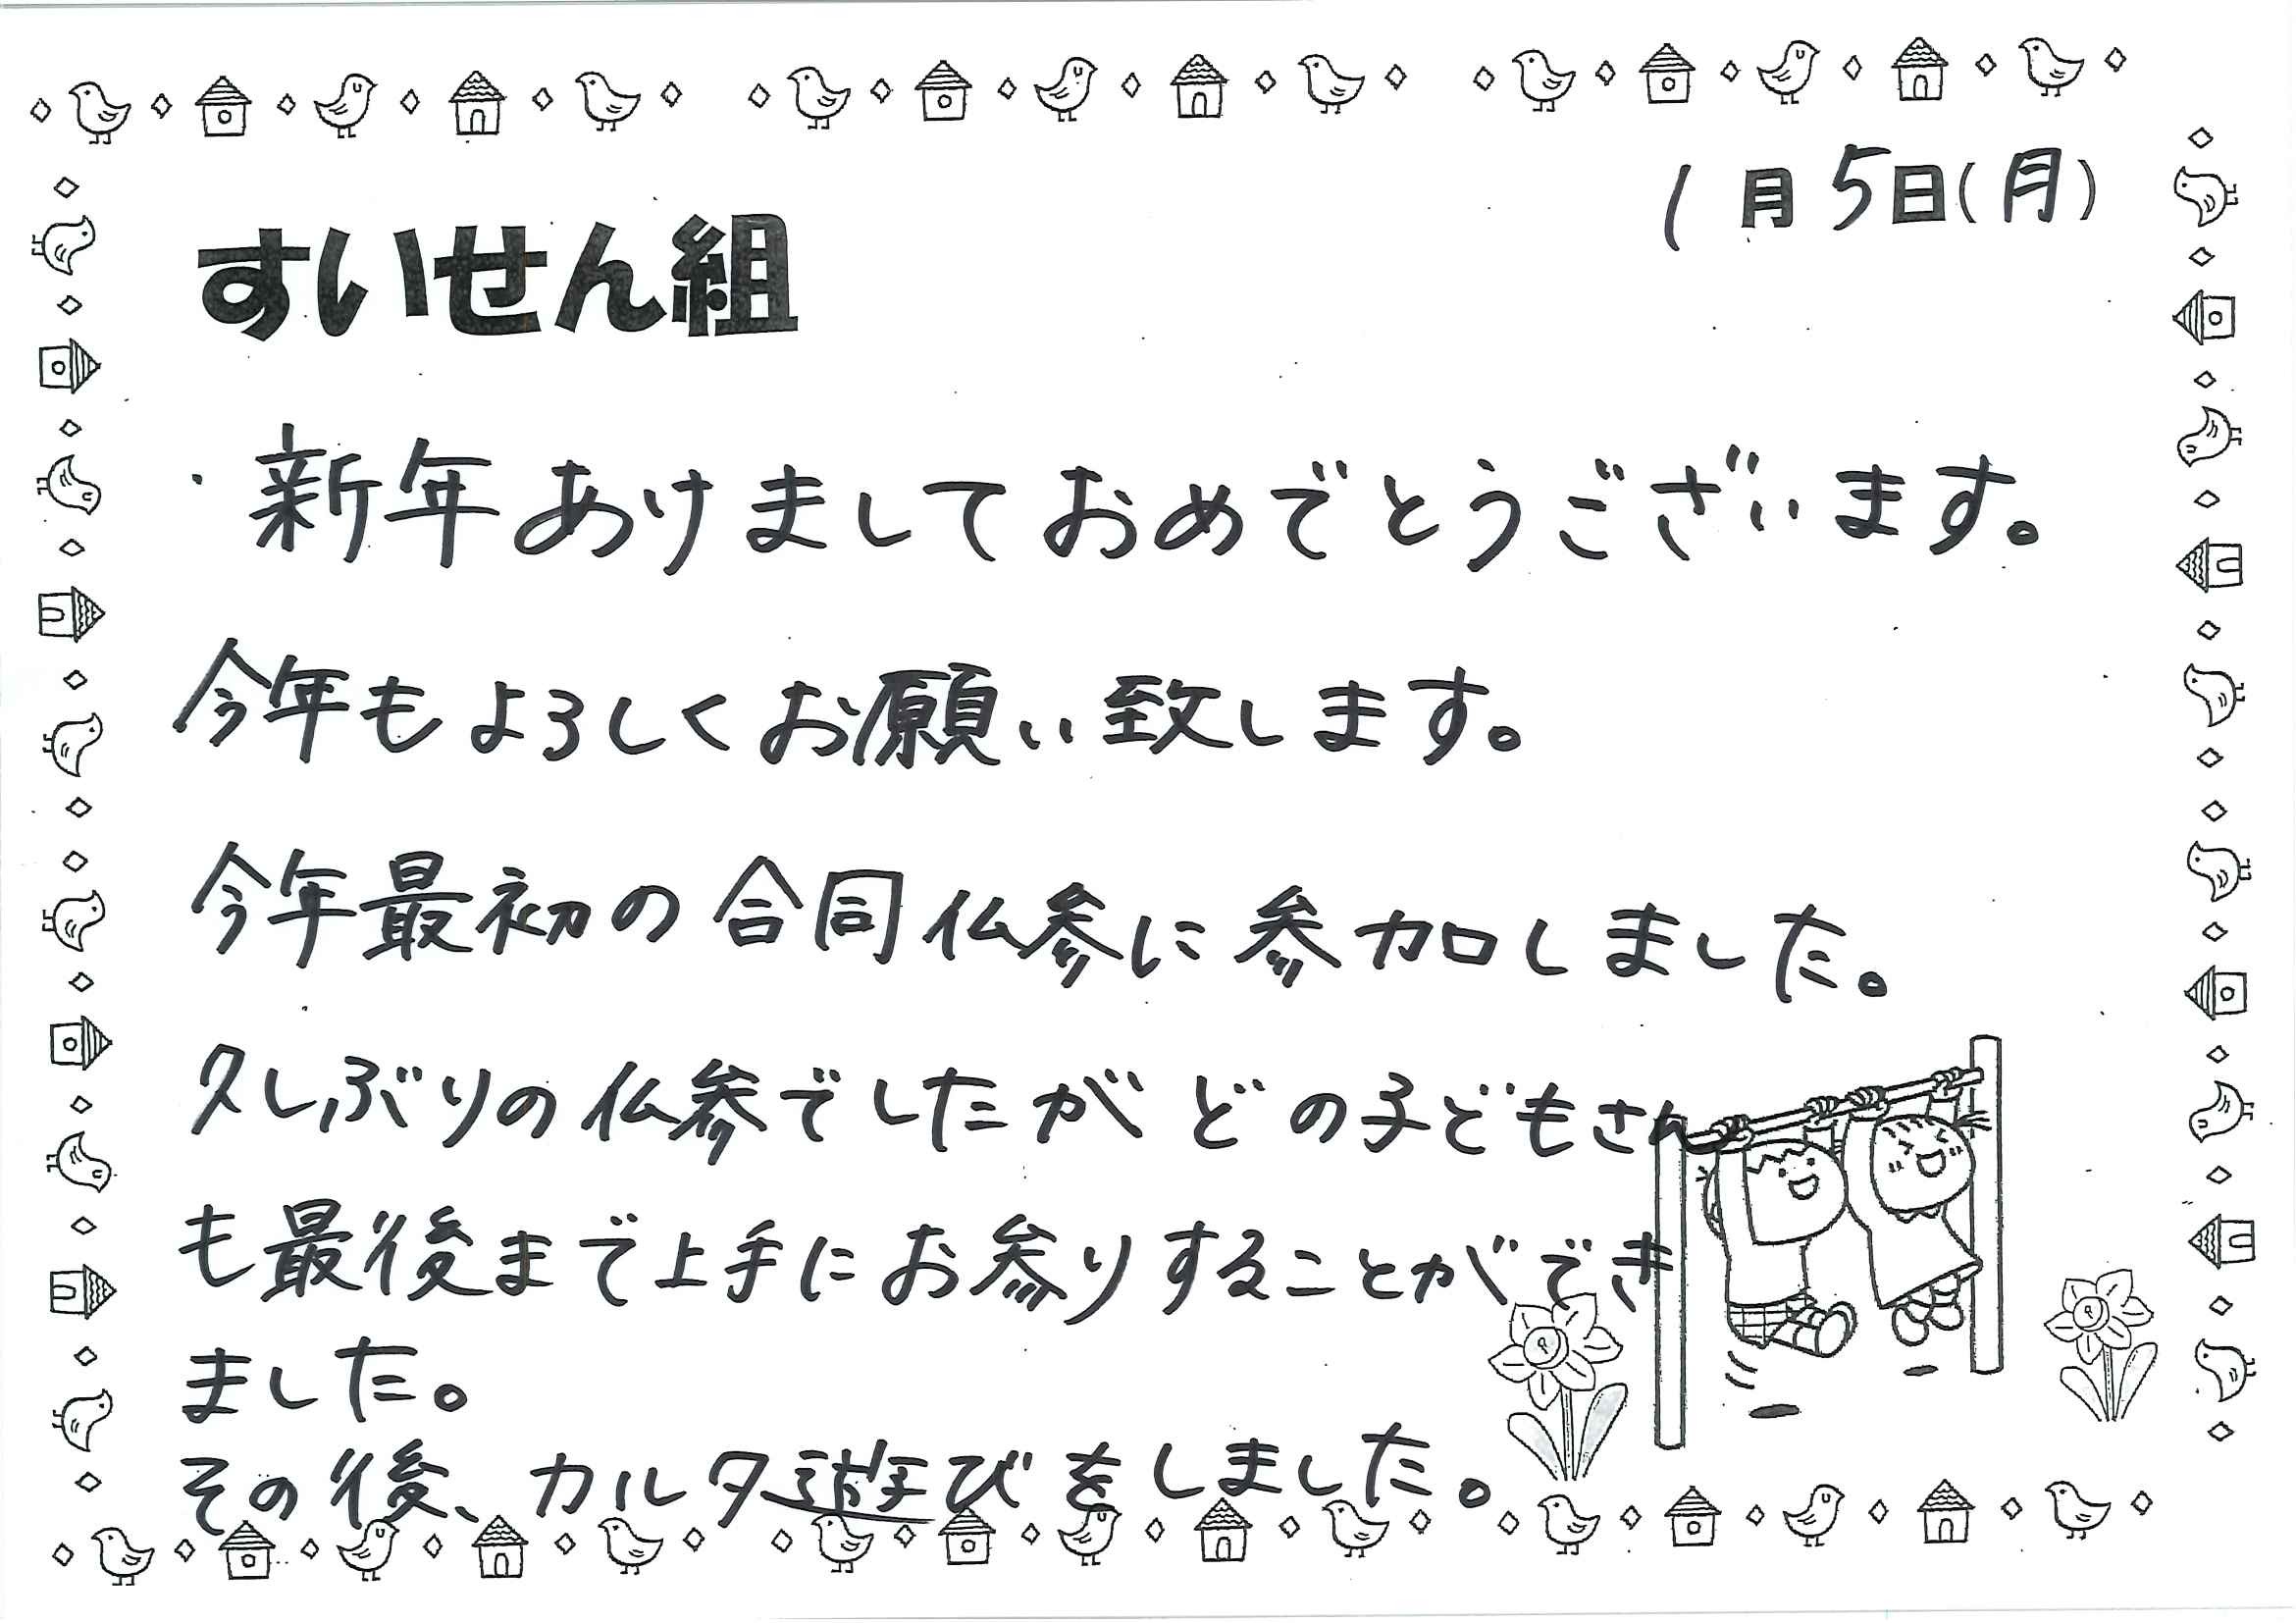 1月5日(月)
すいせん組
・新年あけましておめでとうございます。
今年もよろしくお願い致します。
今年最初の合同仏参に参加しました。
久しぶりの仏参でしたがどの子どもさん
も最後まで上手にお参りすることができ
ました。
その後、カルタ遊びをしました。